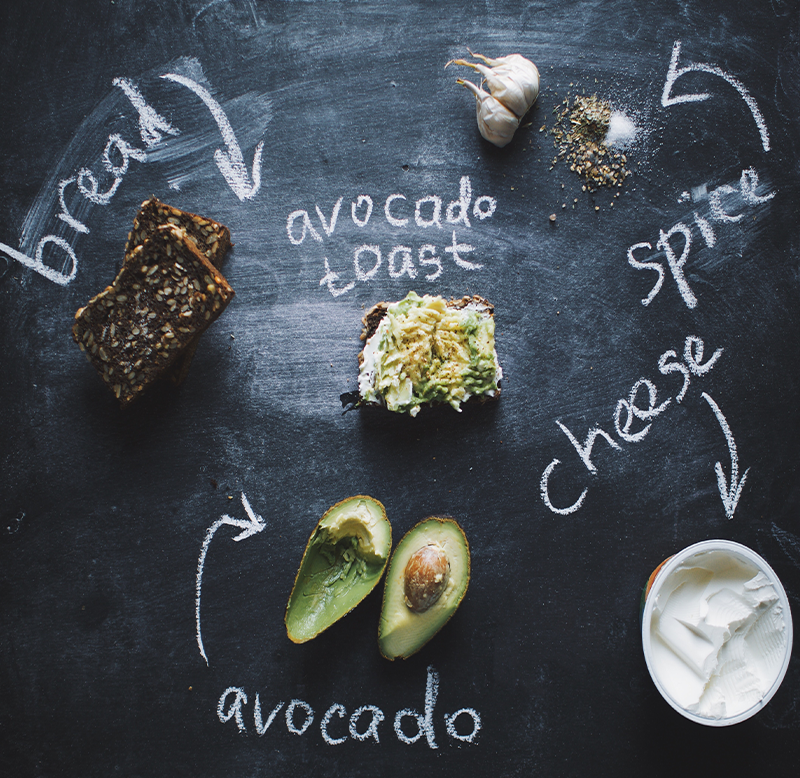 bread
avocado
toast
spice
cheese
avocado